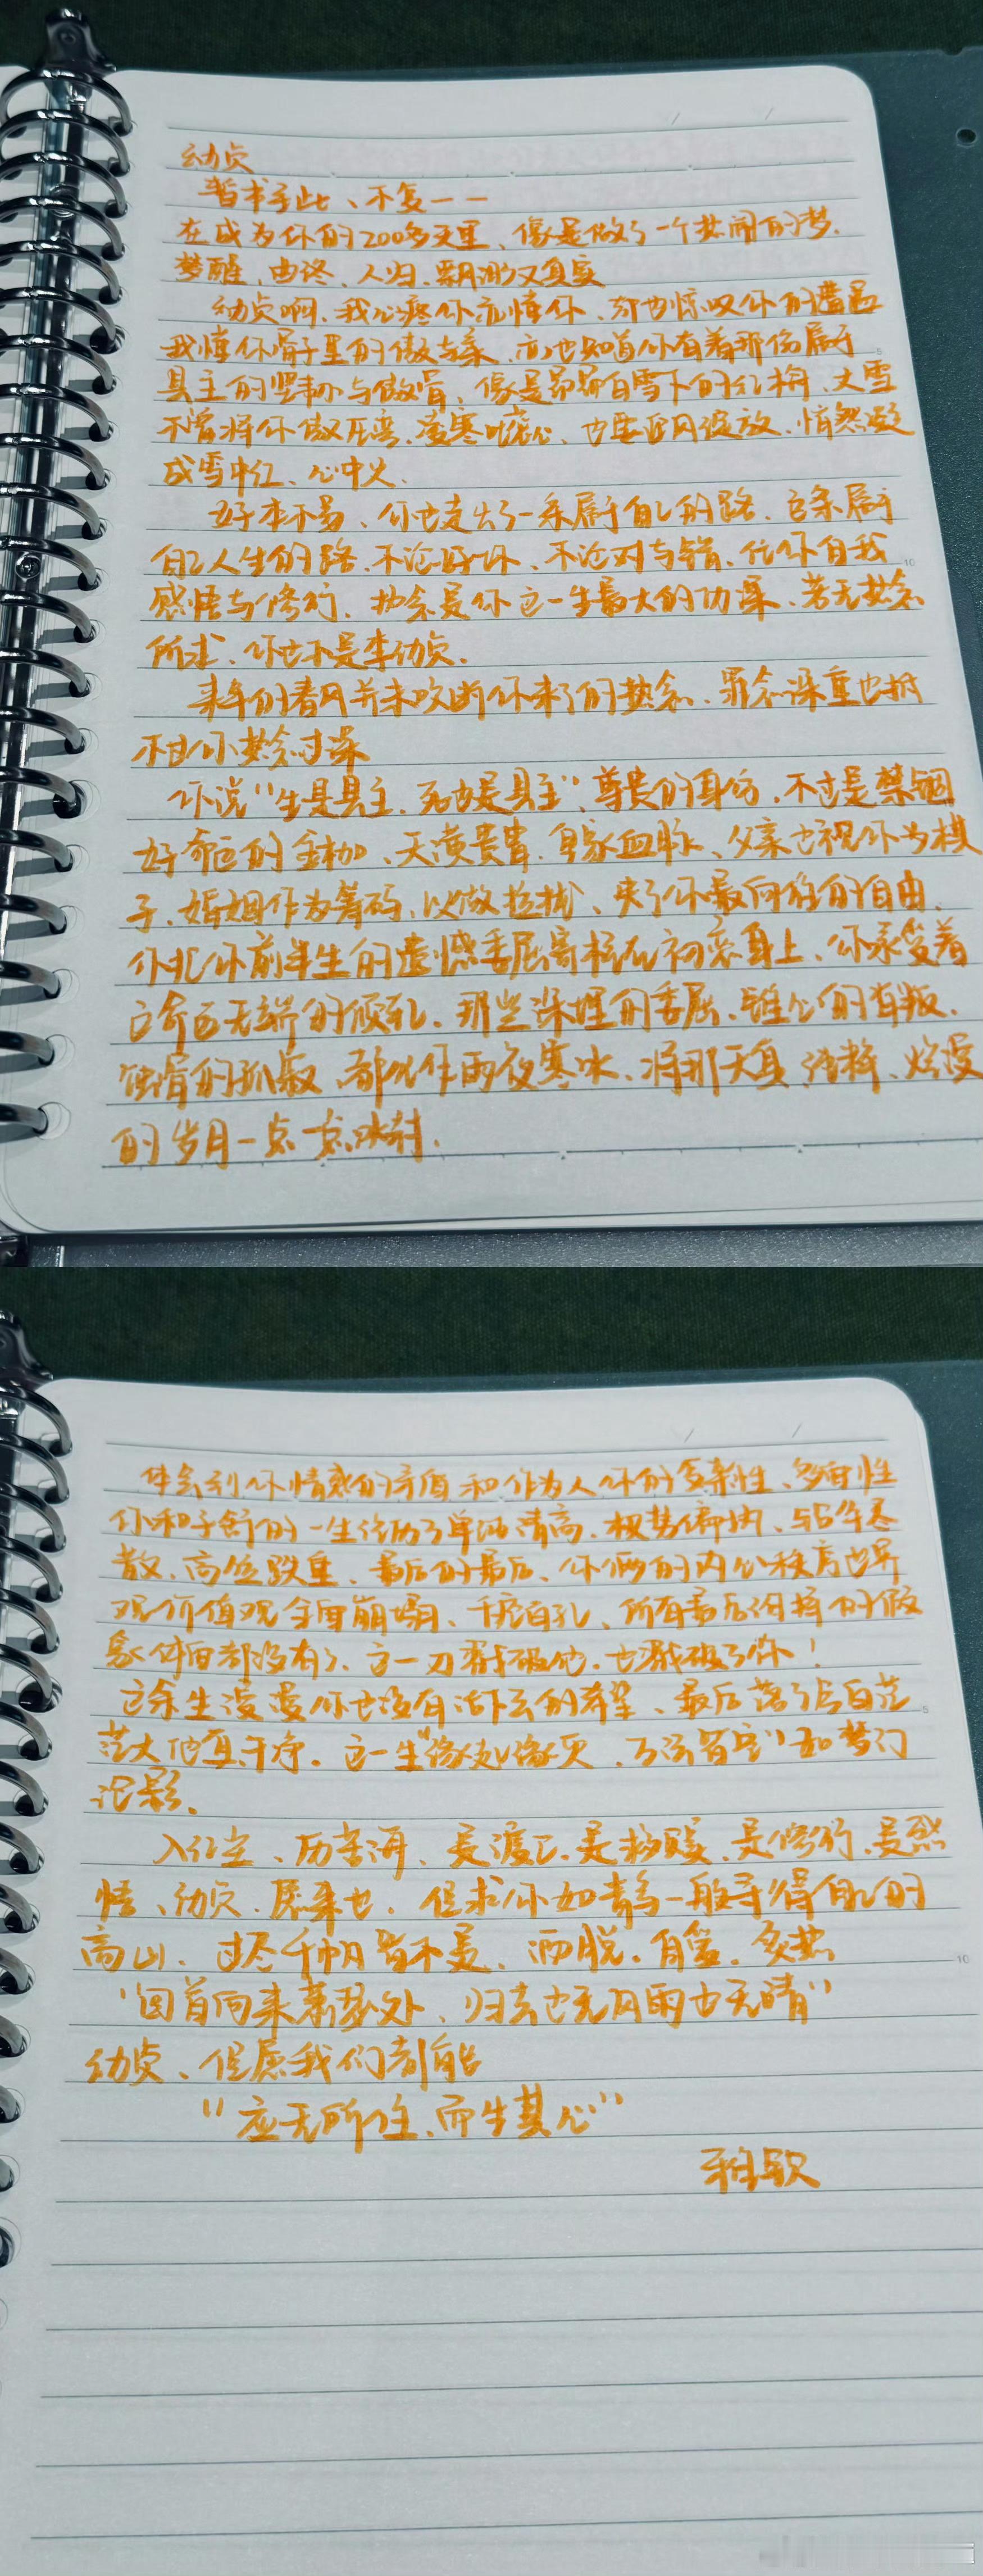 幼贞
暂书于此、不复一一
在成为你的200多天里、像是做了一个热闹的梦.
梦醒、曲终、人归、飘渺又真实
幼贞啊、我心疼你亦懂你、却也惊叹你的遭遇
我懂你骨子里的傲与柔、亦也知道你有着那份属于
县主的坚韧与傲骨、像是昂昂白雪下的红梅、大雪
不曾将你傲压弯、凌寒 、也要迎风绽放、悄然凝
成雪中红、心中火.
好在不易、你也走出了一条属于自己的路、这条属于
自己人生的路、不论好坏、不论对与错、凭你自我
感悟与修行、执念是你这一生最大的功课、若无执念
所求、你也不是李幼贞.
来年的春风并未吹断你来了的执念、罪念深重也抵
不过你执念过深
你说“生是县主、死也是县主”、尊贵的身份、不过是禁锢
好命运的金枷、天潢贵胄、皇家血脉、父亲也视你为棋
子、婚姻作为筹码、以做拉拢、失了你最向往的自由、
你把你前半生的遗憾委屈寄托在初恋身上、你承受着
这命运无端的倾轧、那些深埋的委屈、锥心的背叛、
蚀骨的孤寂、都化作雨夜寒冰、将那天真、纯粹、烂漫
的岁月一点一点冰封.
体会到你情感的矛盾和作为人你的复杂性、多面性
你和子舒的一生经历了单纯清高、权势倾轧、与
散、高位跌重、最后的最后、你俩的内心秩序世界
观价值观全面崩塌、千疮百孔、所有最后维持的假
象体面都没有了、这一刀戳破他、也戳破了你！
这余生漫漫你也没有活下去的希望、最后落了片白茫
茫大地真干净、这一生“缘起缘灭、万法皆空”如梦幻
泡影.
入红尘、历苦海、是渡己、是救赎、是修行、是感
悟、幼贞、愿来世、但求你如青鸟一般寻得自己的
高山、过尽千帆皆不是、洒脱、肆意、炙热
“回首向来萧瑟处、归去也无风雨也无晴”
幼贞、但愿我们都能
“应无所住、而生其心”